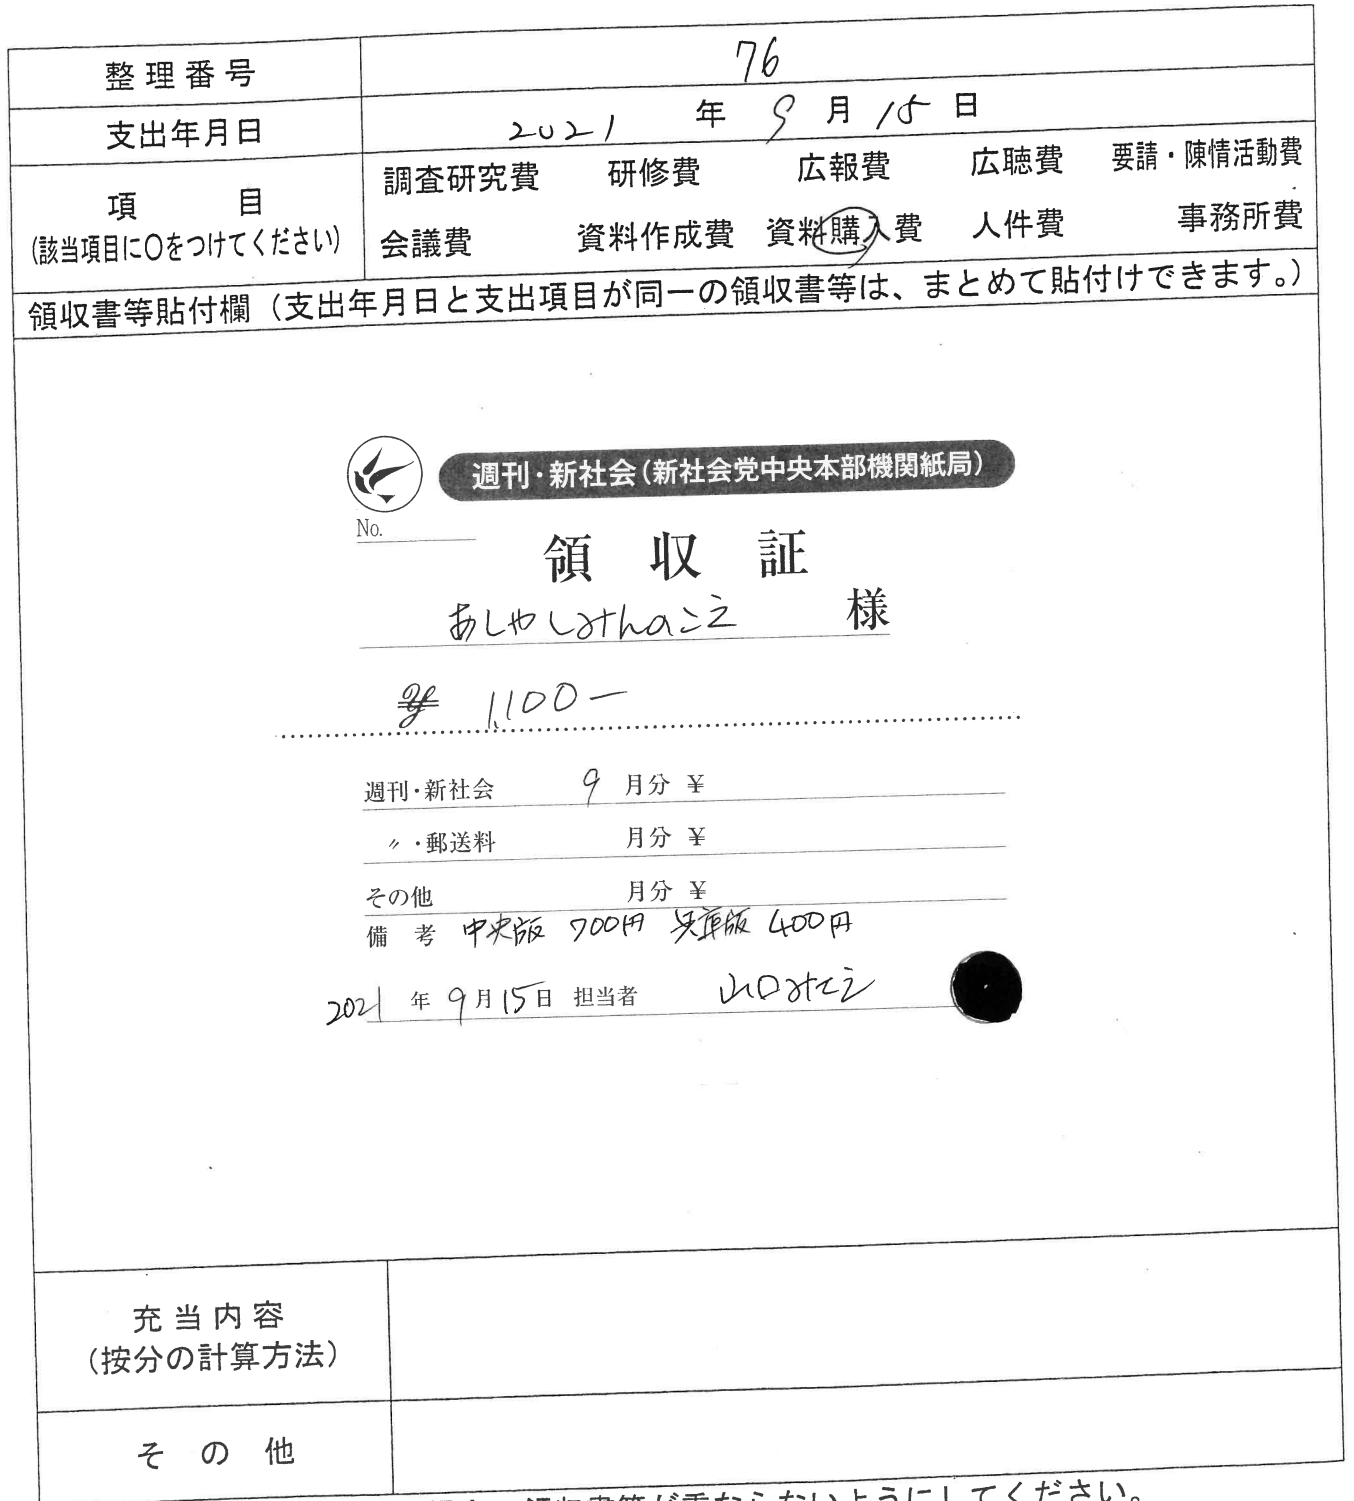 整理番号 76
支出年月日 2021 年 9 月 15 日
項目
(該当項目に○をつけてください)
調査研究費 研修費 広報費 広聴費 要請・陳情活動費
会議費 資料作成費 資料購入費 人件費 事務所費
領収書等貼付欄（支出年月日と支出項目が同一の領収書等は、まとめて貼付けできます。）
週刊・新社会（新社会党中央本部機関紙局）
No.
領収証
あしやしみんのこえ 様
¥ 1,100-
週刊・新社会 9 月分 ¥
〃・郵送料 月分 ¥
その他 月分 ¥
備考 中央版 700円 兵庫版 400円
2021 年 9 月 15 日 担当者 山口みさえ
充当内容
（按分の計算方法）
その他
領収書等が重ならないようにしてください。